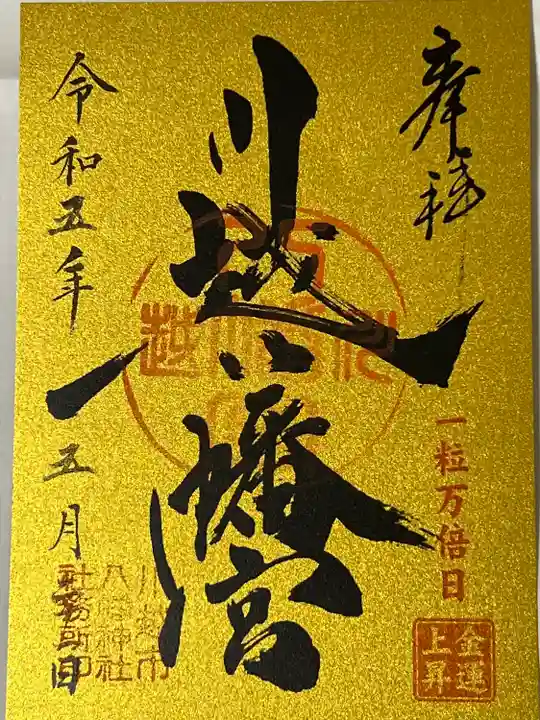 奉拝
一粒万倍日
金運
上昇
川越八幡宮
川越市
八幡神社
社務所印
令和五年五月